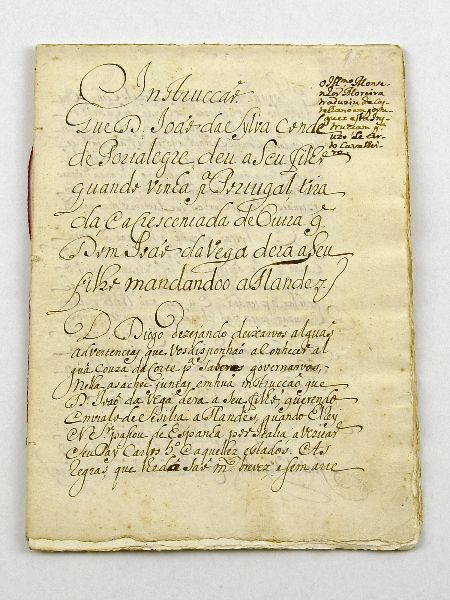 Instrucçaõ
Que D. Joaõ da Silva Conde
de Portalegre, deu a Seu filho
quando vinha pª Portugal, tira
da e acrescentada de outra q̃
Dom Joaõ da Vega dera a Seu
filho mandandoo a Flandez
O Illmo Monse
nhor Moreira
traduziu do Cas
telhano em portu
guez esta Ins
trucçaõ
D. Diogo dezejando deixarvos algũas
advertencias que vos disponhaõ a Conhecer al
gũa Couza da Corte pª Saberes governarvos,
Nella as achei juntas em hũa instrucçaõ que
D. Joaõ da Vega dera a Seu filho, querendo
Enviallo de Sicilia a Flandes, quando ElRey
N. S. passou de Espanha por Italia a Visitar
Seu Pay Carlos 5º Daquellez estados. As
regras, que lhe dá Saõ mᵗᵒ brevez e Sem arte